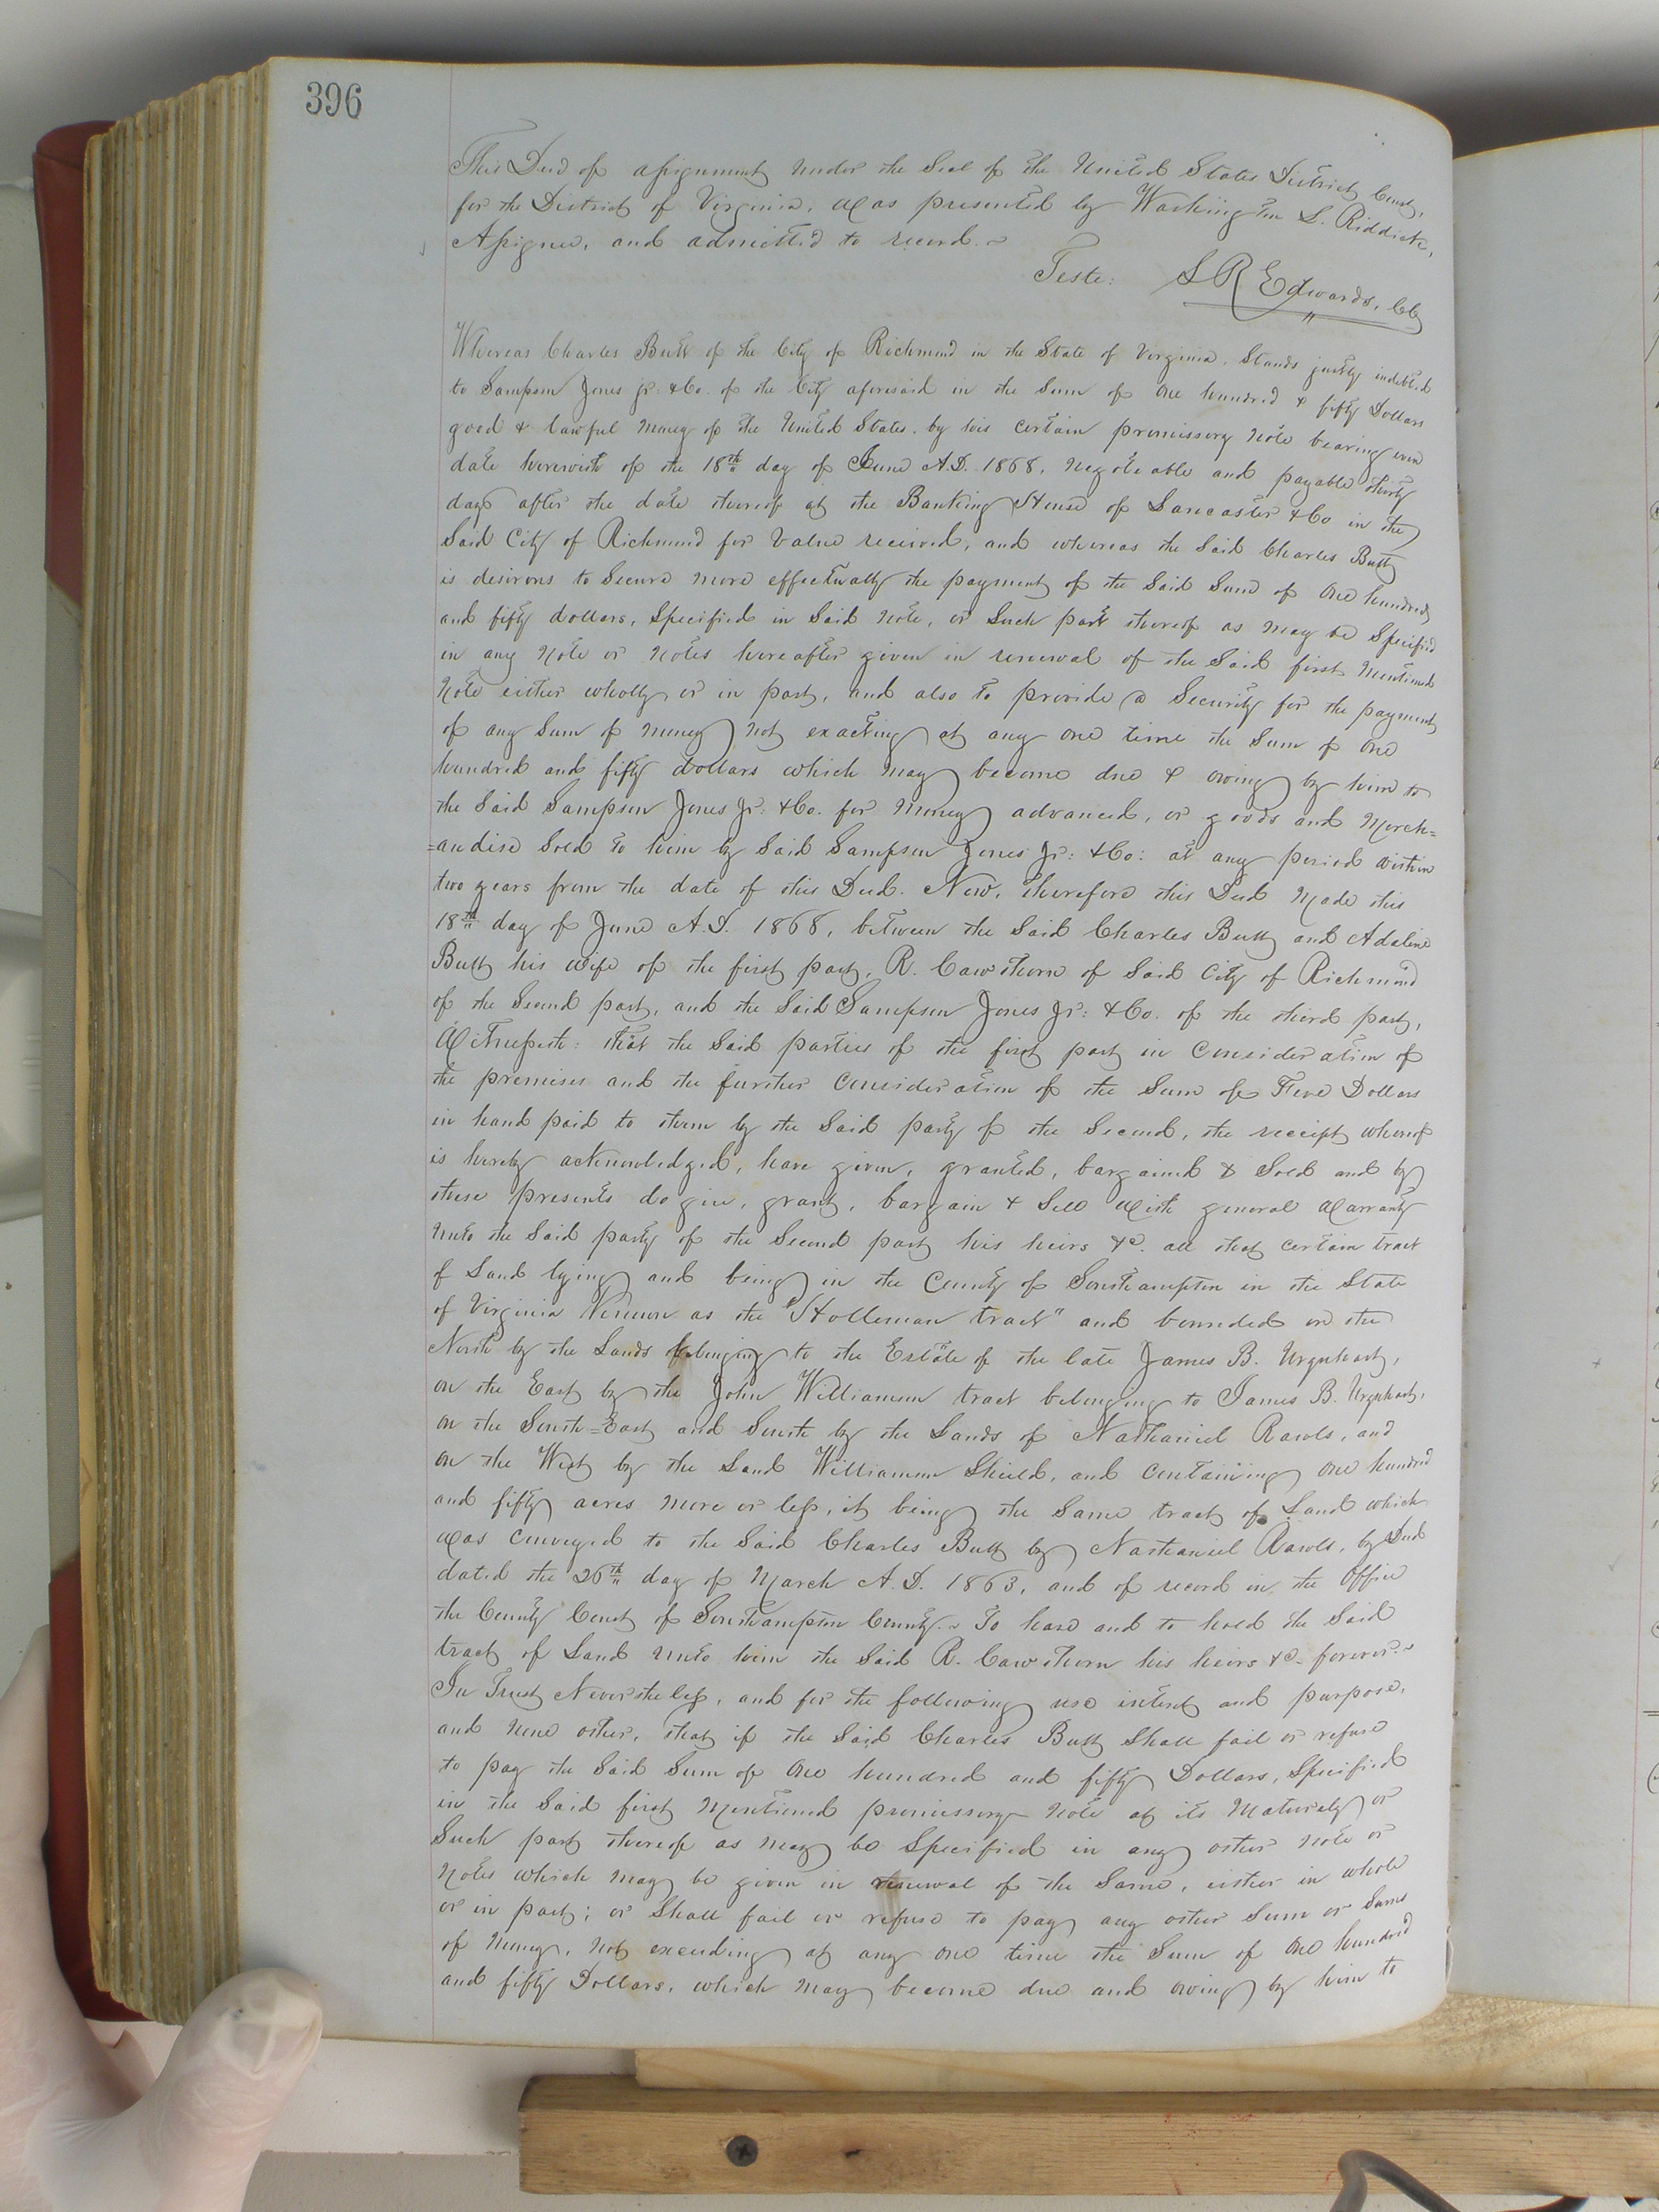 396
This Deed of assignment under the Seal of the United States District Court,
for the District of Virginia, was presented by Washington L. Riddick,
Assignee, and admitted to record.~
Teste: L R Edwards, Clk
Whereas Charles Butt of the City of Richmond in the State of Virginia, Stands justly indebted
to Sampson Jones jr: &Co. of the City aforesaid in the Sum of One hundred & fifty Dollars
good & lawful money of the United States. by his certain promissory note bearing even
date herewith of the 18th day of June A.D. 1868, Negotiable and payable thirty
days after the date thereof at the Banking House of Lancaster &Co in the
Said City of Richmond for Value received, and whereas the Said Charles Butt
is desirous to Secure more effectually the payment of the Said Sum of One hundred
and fifty dollars, Specified in Said Note, or Such part thereof as may be Specified
in any Note or Notes hereafter given in renewal of the Said first Mentioned
Note either wholly or in part, and also to provide a Security for the payment
of any Sum of money not exacting at any one time the Sum of One
hundred and fifty dollars which may become due & owing by him to
the Said Sampson Jones Jr: &Co. for Money advanced, or goods and Merch=
=andise Sold to him by Said Sampson Jones Jr: &Co: at any period within
two years from the date of this Deed. Now, therefore this Deed Made this
18th day of June A.D. 1868, between the Said Charles Butt and Adaline
Butt his wife of the first part, R. Cawthorn of Said City of Richmond
of the Second part, and the Said Sampson Jones Jr: &Co. of the third part,
Witnesseth: that the Said parties of the first part in Consideration of
the premises and the further Consideration of the Sum of Five Dollars
in hand paid to them by the Said party of the Second, the receipt whereof
is hereby acknowledged, have given, granted, bargained & Sold and by
these presents do give, grant, bargain & Sell with general warranty
Unto the Said party of the Second part his heirs &c. all that certain tract
of Land lying and being in the County of Southampton in the State
of Virginia Known as the "Holleman tract" and bounded on the
North by the Lands belonging to the Estate of the late James B. Urquhart,
on the East by the John Williamson tract belonging to James B. Urquhart,
on the South=East and South by the Lands of Nathaniel Rawls, and
on the West by the Land Williamson Shield, and Containing One hundred
and fifty acres more or less, it being the Same tract of Land which
was Conveyed to the Said Charles Butt by Nathaniel Rawls, by Deed
dated the 26th day of March A.D. 1863, and of record in the Office
the County Court of Southampton County.~ To have and to hold the Said
tract of Land Unto him the Said R. Cawthorn his heirs &c. forever.~
In Trust Nevertheless, and for the following use intent and purpose,
and none other, that if the Said Charles Butt Shall fail or refuse
to pay the Said Sum of One hundred and fifty Dollars, Specified
in the Said first Mentioned promissory Note at its Maturety or
Such part thereof as may be Specified in any other Note or
Notes which may be given in renewal of the Same, either in whole
or in part; or Shall fail or refuse to pay any other Sum or Sums
of Money, not exceeding at any one time the Sum of One hundred
and fifty Dollars, which may become due and owing by him to